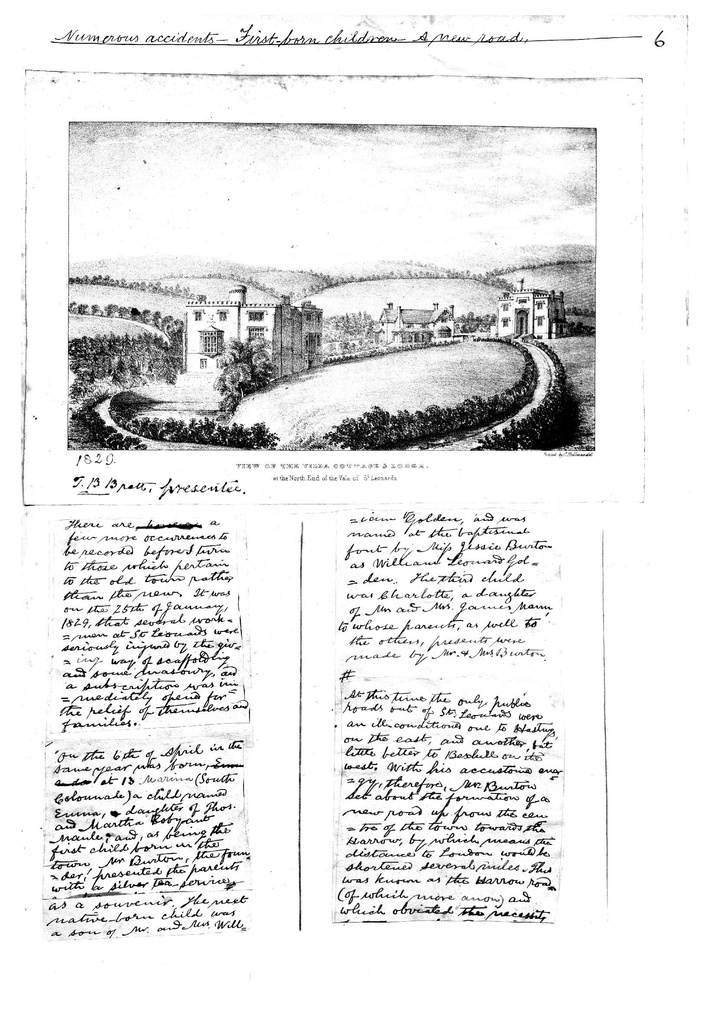 Numerous accidents – First-born children – A new road.
6
1829.
VIEW OF THE VILLA COTTAGE & LODGE.
at the North End of the Vale of St Leonards
T. B Brett, presentee.
There are, a
few more occurrences to
be recorded before I turn
to those which pertain
to the old town rather
than the new. It was
on the 25th of January,
1829, that several work-
=men at St Leonards were
seriously injured by the giv-
=ing way of scaffolding
and some masonry, and
a subscription was im-
=mediately opened for
the relief of themselves and
families.
On the 6th of April in the
same year was born,
at 13 Marina (South
Colonnade) a child named
Emma, a daughter of Thos.
and Martha
and, as being the
first child born in the
town Mr Burton, the foun-
=der, presented the parents
with a silver tea-service
as a souvenir. The next
native-born child was
a son of Mr. and Mrs Will-
=iam Golden, and was
named at the baptismal
font by Miss Jessie Burton
as William Leonard Gol=
=den. The third child
was Charlotte, a daughter
of Mr and Mrs. James Mann
to whose parents, as well as
the others, presents were
made by Mr. & Mrs Burton.
#
At this time the only public
roads out of St. Leonards were
an ill-conditioned one to Hastings
on the east, and another, but
little better to Bexhill on the
west. With his accustomed ener
=gy, therefore, Mr. Burton
set about the formation of a
new road up from the cen
=tre of the town towards the
Harrow, by which means the
distance to London would be
shortened several miles. This
was known as the Harrow road
(of which more anon) and
which obviated the necessity